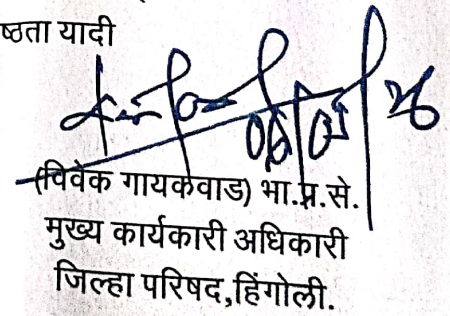 ष्ठता यादी
(विवेक गायकवाड) भा.प्र.से.
मुख्य कार्यकारी अधिकारी
जिल्हा परिषद,हिंगोली.